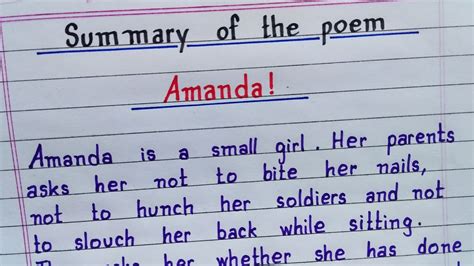 Summary of the poem
Amanda!
Amanda is a small girl. Her parents
asks her not to bite her nails,
not to hunch her soldiers and not
to slouch her back while sitting.
her whether she has done